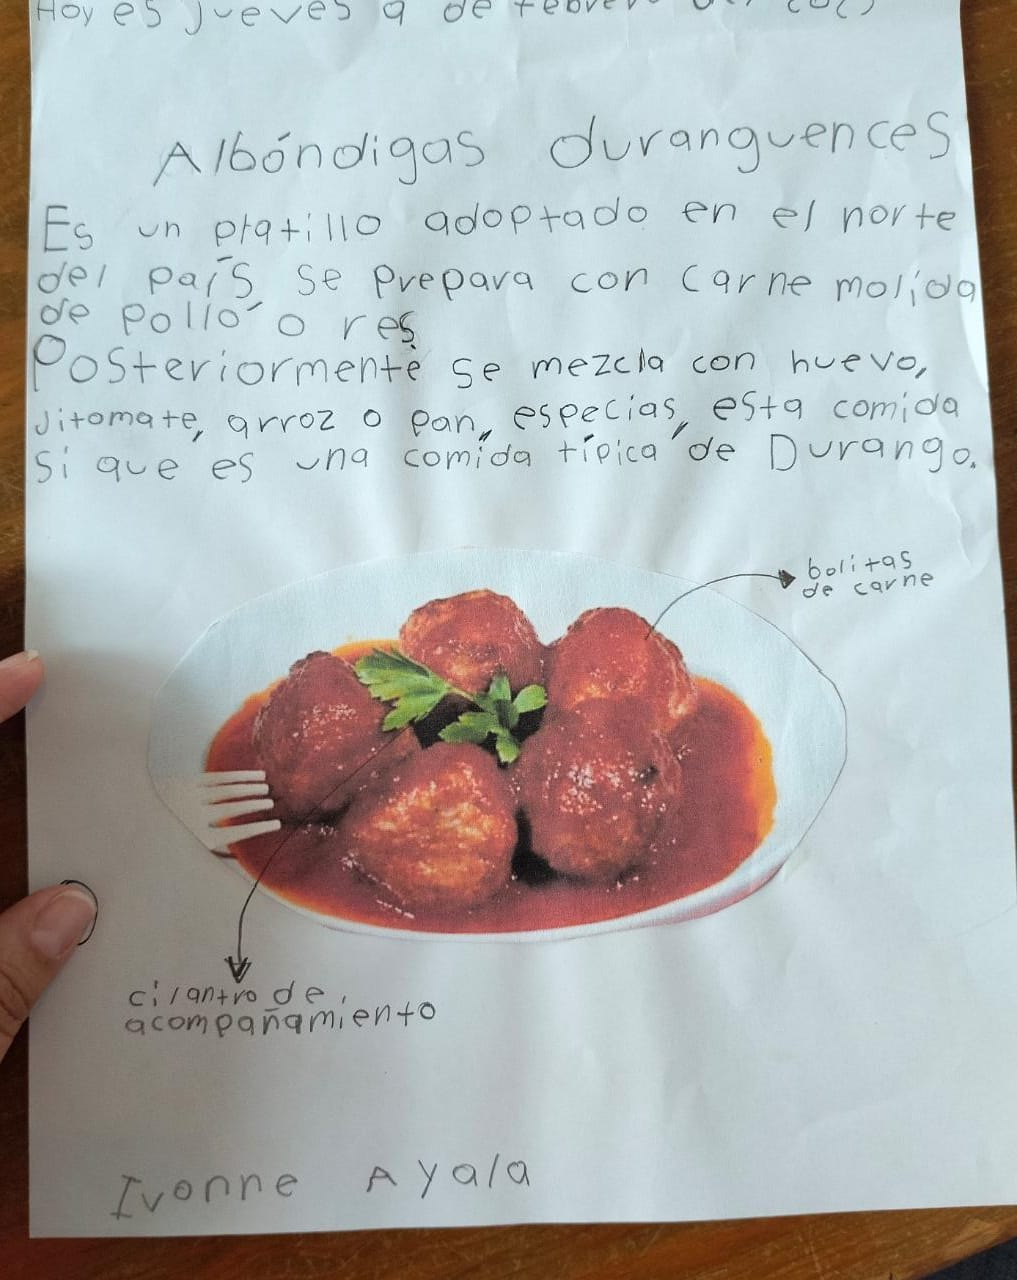 Hoy es jueves 9 de febrero del
Albóndigas duranguences
Es un platillo adoptado en el norte
del país, se prepara con carne molida
de pollo o res.
Posteriormente se mezcla con huevo,
Jitomate, arroz o pan, especias, esta comida
si que es una comida típica de Durango.
bolitas
de carne
cilantro de
acompañamiento
Ivonne Ayala